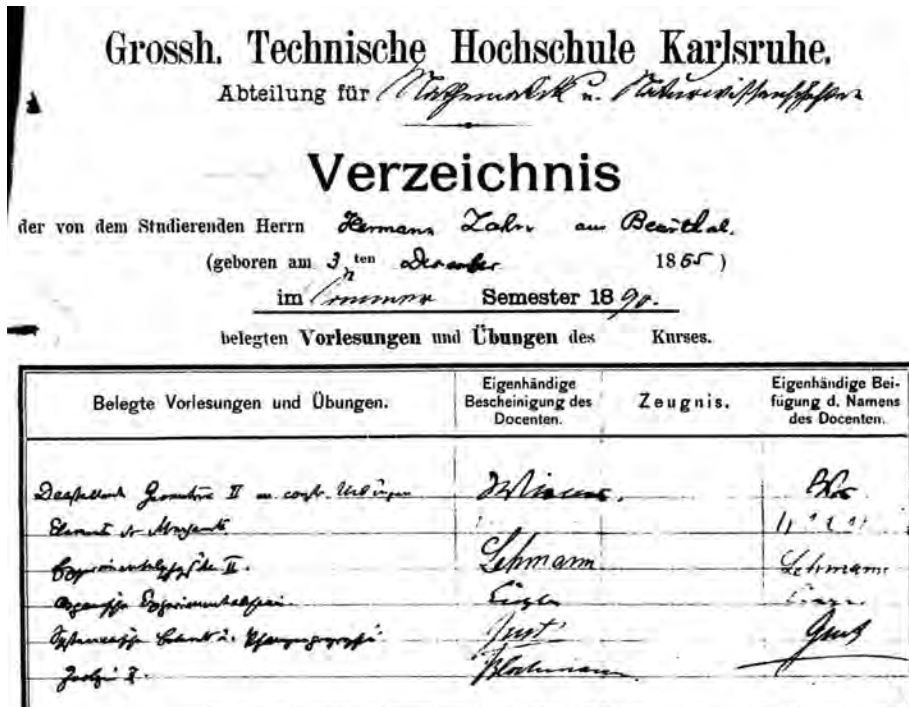 Grossh. Technische Hochschule Karlsruhe.
Abteilung für Mathematik u. Naturwissenschaften
Verzeichnis
der von dem Studierenden Herrn Hermann Zahn aus
(geboren am 3ten Dezember 1865)
im Sommer Semester 1890.
belegten Vorlesungen und Übungen des Kurses.
Belegte Vorlesungen und Übungen. Eigenhändige Bescheinigung des Docenten. Zeugnis. Eigenhändige Beifügung d. Namens des Docenten.
Darstellende Geometrie II Übungen Wiener.
Experimentalphysik II. Lehmann Lehmann
Organische Experimentalchemie.
Systematische Botanik u. Just Just
Zoologie I. Blochmann